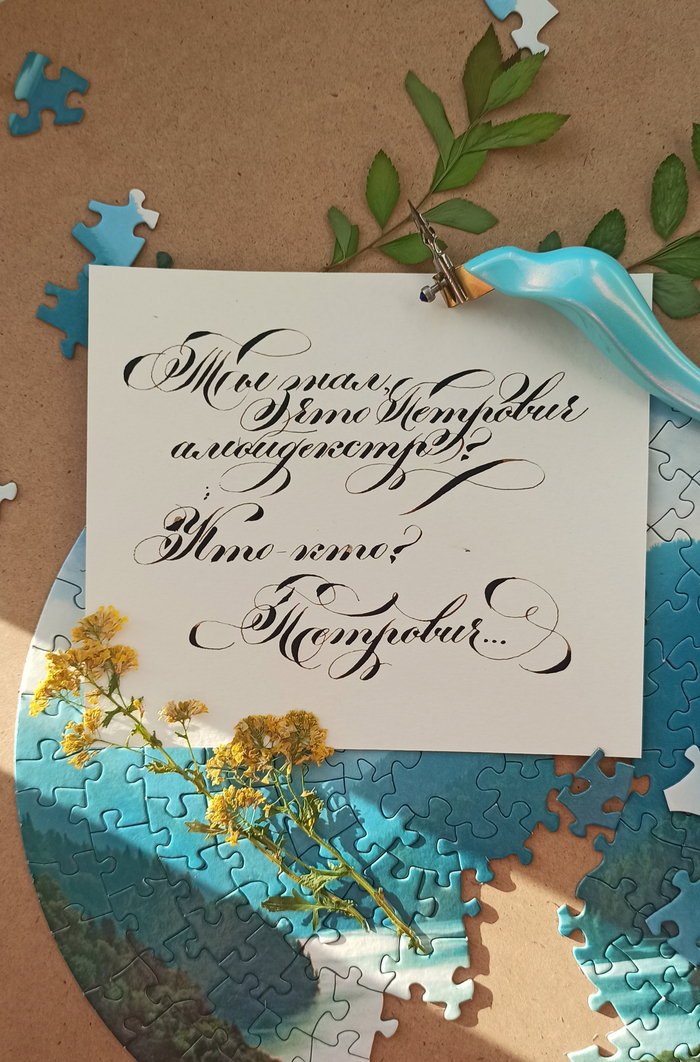 Ты знал,
что Петрович
амбидекстр?
Что-кто?
Петрович...